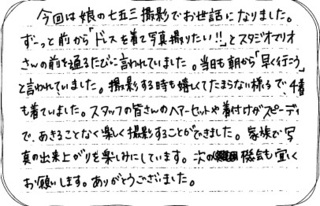 今回は娘の七五三撮影でお世話になりました。
ずーっと前から「ドレスを着て写真撮りたい!!」とスタジオマリオ
さんの前を通るたびに言われていました。当日も朝から「早く行こう」
と言われていました。撮影する時も嬉しくてたまらない様子で4着
も着ていました。スタッフの皆さんのヘアーセットや着付けがスピーディ
で、あきることなく楽しく撮影することができました。家族で写
真の出来上がりを楽しみにしています。次の機会も宜しく
お願いします。ありがとうございました。